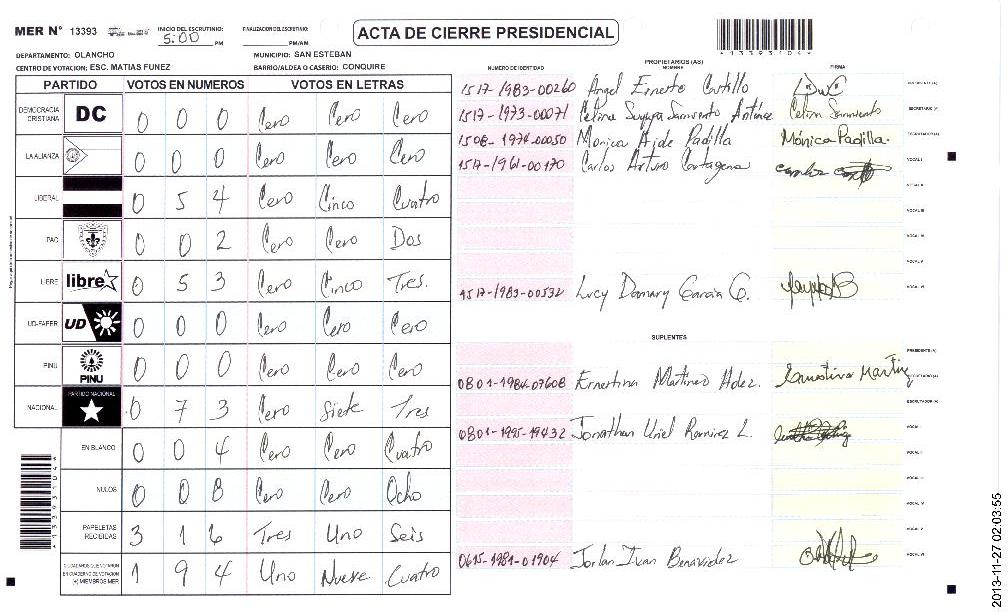 MER N° 13393
INICIO DEL ESCRUTINIO: 5:00 PM
FINALIZACION DEL ESCRUTINIO: PM/AM
ACTA DE CIERRE PRESIDENCIAL
DEPARTAMENTO: OLANCHO
MUNICIPIO: SAN ESTEBAN
CENTRO DE VOTACION: ESC. MATIAS FUNEZ
BARRIO/ALDEA O CASERIO: CONQUIRE
PARTIDO VOTOS EN NUMEROS VOTOS EN LETRAS
DEMOCRACIA CRISTIANA DC 0 0 0 Cero Cero Cero
LA ALIANZA 0 0 0 Cero Cero Cero
LIBERAL 0 5 4 Cero Cinco Cuatro
PAC 0 0 2 Cero Cero Dos
LIBRE libre 0 5 3 Cero Cinco Tres.
UD-FAPER UD 0 0 0 Cero Cero Cero
PINU PINU 0 0 0 Cero Cero Cero
NACIONAL PARTIDO NACIONAL 0 7 3 Cero Siete Tres
EN BLANCO 0 0 4 Cero Cero Cuatro
NULOS 0 0 8 Cero Cero Ocho
PAPELETAS RECIBIDAS 3 1 6 Tres Uno Seis
CIUDADANOS QUE VOTARON EN CUADERNO DE VOTACION (+) MIEMBROS MER 1 9 4 Uno Nueve Cuatro
*13393104*
PROPIETARIOS (AS)
NUMERO DE IDENTIDAD NOMBRE FIRMA
1517-1983-00260 Angel Ernesto Castillo PRESIDENTE (A)
1517-1973-00071 Celina Suyapa Sarmiento Antúnez Celin Sarmiento SECRETARIO (A)
1508-1974-00050 Monica Aide Padilla Mónica Padilla. ESCRUTADOR (A)
1517-1961-00170 Carlos Arturo Cartagena VOCAL I
VOCAL II
VOCAL III
VOCAL IV
VOCAL V
1517-1983-00532 Lucy Damary Garcia G. VOCAL VI
SUPLENTES
PRESIDENTE (A)
0801-1984-07608 Ernestina Martinez Hdez. SECRETARIO (A)
ESCRUTADOR (A)
0801-1995-19432 Jonathan Uriel Ramirez L. VOCAL I
VOCAL II
VOCAL III
VOCAL IV
VOCAL V
0615-1981-01904 Jorlan Ivan Benavidez VOCAL VI
*13393104*
2013-11-27 02:03:55